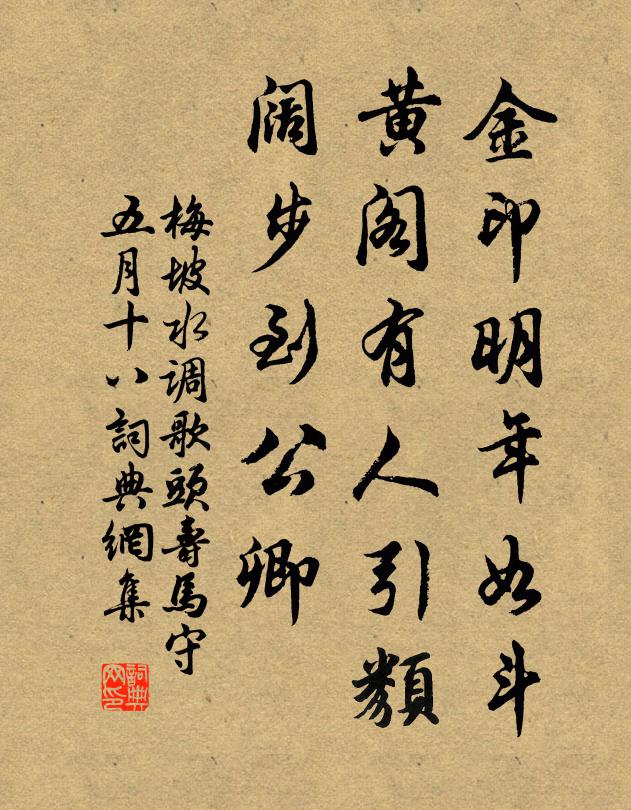 金印明年如斗
黄阁有人引類
阔步到公卿
梅坡水调歌頭壽馬守
五月十八詞典網集
詞典
网印